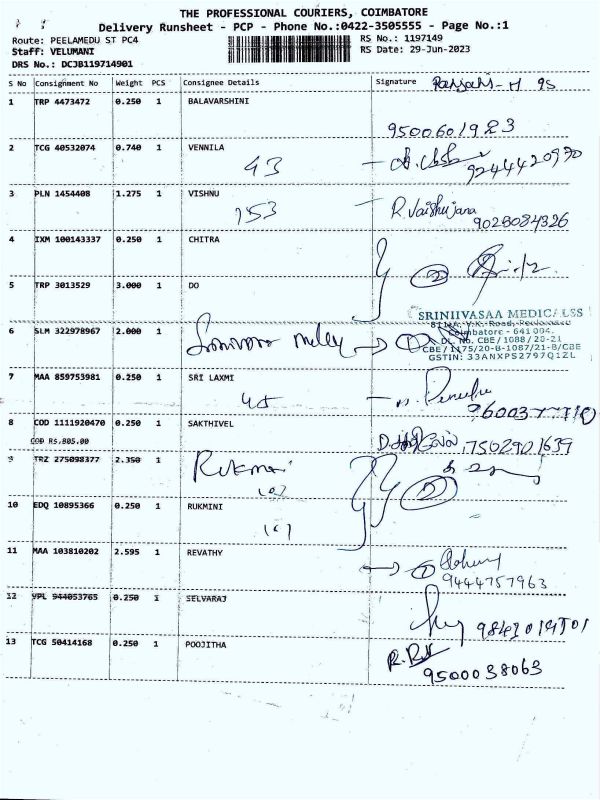 THE PROFESSIONAL COURIERS, COIMBATORE
Delivery Runsheet - PCP - Phone No.:0422-3505555 - Page No.:1
Route: PEELAMEDU ST PC4
RS No.: 1197149
Staff: VELUMANI
RS Date: 29-Jun-2023
DRS No.: DCJB119714901
S No Consignment No Weight PCS Consignee Details Signature
1 TRP 4473472 0.250 1 BALAVARSHINI
9500601983
2 TCG 40532074 0.740 1 VENNILA
43
9244420970
3 PLN 1454408 1.275 1 VISHNU
153 R.Vaishujana
9028084326
4 IXM 100143337 0.250 1 CHITRA
2
5 TRP 3013529 3.000 1 DO
SRINIIVASAA MEDICALSS
Coimbatore - 641 004.
6 SLM 322978967 2.000 1
DL. No. CBE / 1088 / 20-21
CBE / 1175/20-B-1087/21-B/CBE
GSTIN: 33ANXPS2797Q1ZL
7 MAA 859753981 0.250 1 SRI LAXMI
45
8 COD 1111920470 0.250 1 SAKTHIVEL
COD Rs.805.00
7502901639
9 TRZ 275098377 2.350 1 Rukmani
2
10 EDQ 10895366 0.250 1 RUKMINI
11 MAA 103810202 2.595 1 REVATHY
9444757963
12 VPL 944053765 0.250 1 SELVARAJ
13 TCG 50414168 0.250 1 POOJITHA
9500038063